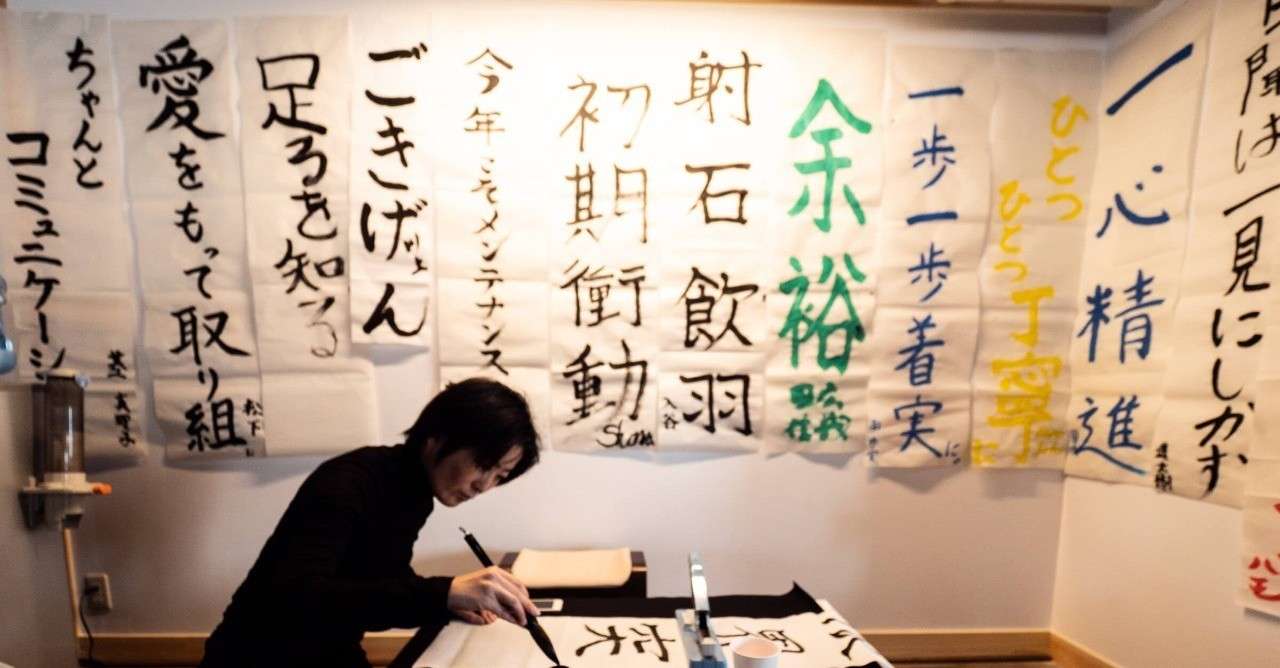 聞は一見にしかず
一心精進
ひとつ
ひとつ
丁寧に
一歩一歩着実に
余裕
射石飲羽
入谷
初期衝動
今年こそメンテナンス
ごきげん
足るを知る
愛をもって取り組
松下
ちゃんと
コミュニケーシ